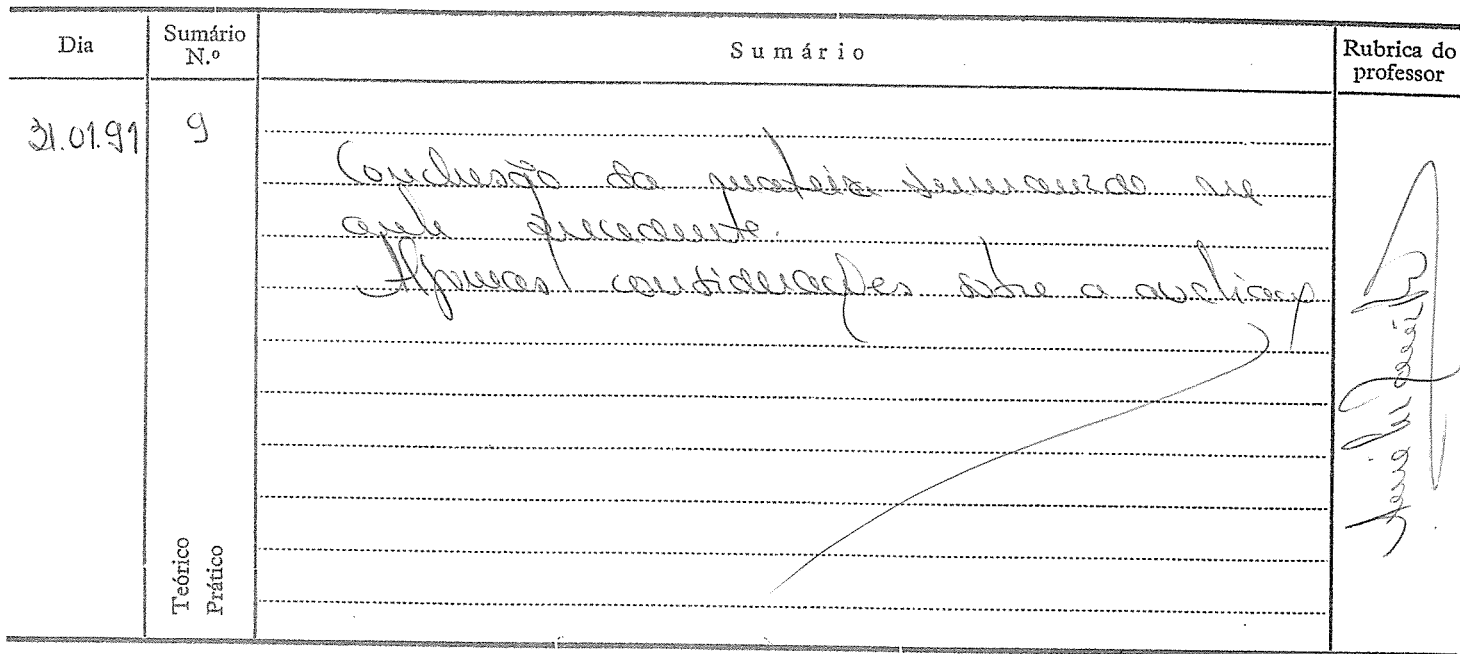 Dia
Sumário N.º
Sumário
Rubrica do professor
31.01.91
9
Conclusão da matéria sumariada na
aula precedente.
Algumas considerações sobre a avaliação
Teórico
Prático